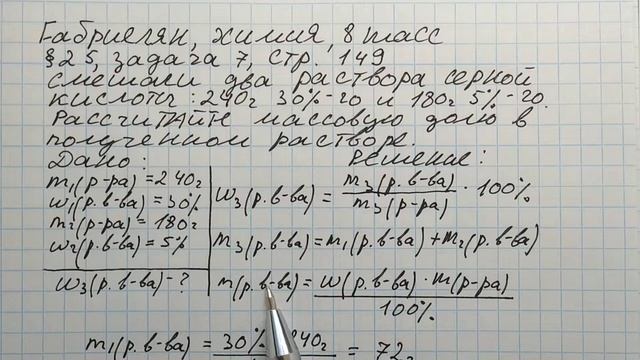 Габриелян, химия, 8 класс
§25, задача 7, стр. 149
смешали два раствора серной
кислоты: 240г 30%-го и 180г 5%-го.
Рассчитайте массовую долю в
полученном растворе.
Дано: Решение:
m₁(р-ра)=240г
ω₁(р.в-ва)=30%
m₂(р-ра)=180г
ω₂(р.в-ва)=5%
ω₃(р.в-ва)-?
ω₃(р.в-ва) = m₃(р.в-ва) / m₃(р-ра) · 100%
m₃(р.в-ва)=m₁(р.в-ва)+m₂(р.в-ва)
m(р.в-ва)= ω(р.в-ва)·m(р-ра) / 100%
m₁(р.в-ва) = 30% 240г = 72г